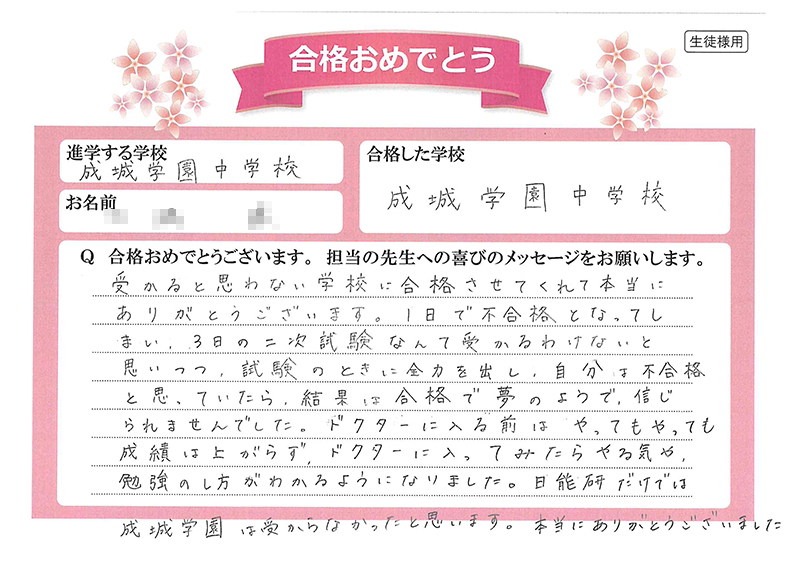 合格おめでとう
生徒様用
進学する学校
成城学園中学校
合格した学校
成城学園中学校
お名前
Q 合格おめでとうございます。担当の先生への喜びのメッセージをお願いします。
受かると思わない学校に合格させてくれて本当に
ありがとうございます。1日で不合格となってし
まい、3日の二次試験なんて受かるわけないと
思いつつ、試験のときに全力を出し、自分は不合格
と思っていたら、結果は合格で夢のようで、信じ
られませんでした。ドクターに入る前はやってもやっても
成績は上がらず、ドクターに入ってみたらやる気や、
勉強のし方がわかるようになりました。日能研だけでは
成城学園は受からなかったと思います。本当にありがとうございました